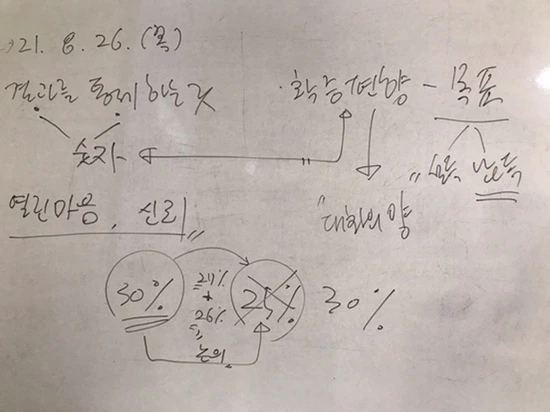 21. 8. 26. (목)
결과를 통제하는 것
확증편향 - 목표
숫자
납득
열린마음, 신뢰"
"대화의 양
30%
+
26%
25%
30%
논의